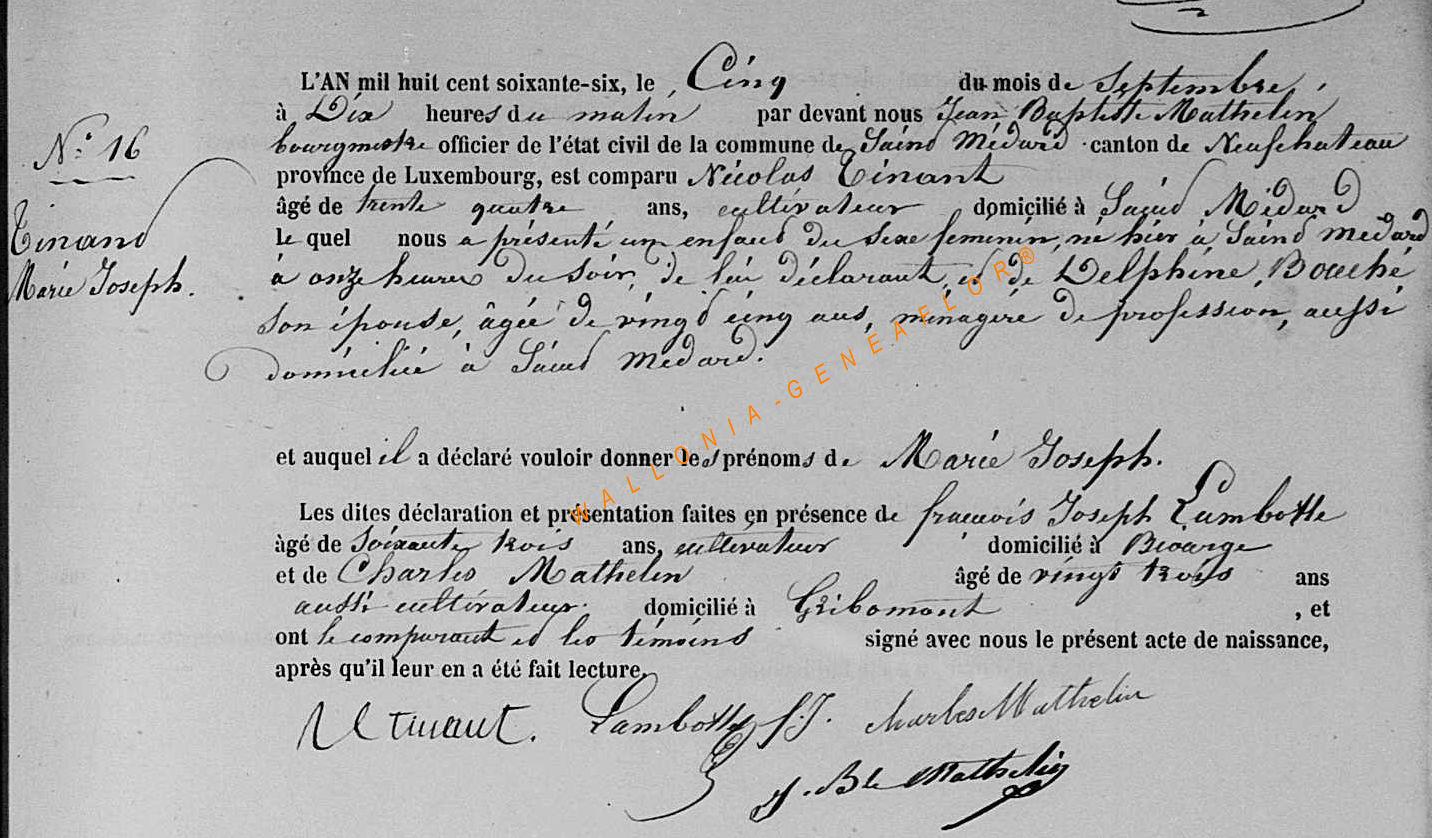 L'AN mil huit cent soixante-six, le Cinq du mois de Septembre,
à Dix heures du matin par devant nous Jean Baptiste Mathelin
N.° 16
bourgmestre officier de l'état civil de la commune de Saind Médard canton de Neufchateau
province de Luxembourg, est comparu Nicolas Tinant
âgé de trente quatre ans, cultivateur domicilié à Saind Médard
Tinand
Marie Joseph.
le quel nous a présenté un enfand du sexe feminin, né hier à Saind Médard
à onze heures du soir, de lui déclarant, et de Delphine Bouché
son épouse, âgée de vingd cinq ans, ménagère de profession, aussi
domiciliée à Saind Médard.
et auquel il a déclaré vouloir donner les prénoms de Marie Joseph.
Les dites déclaration et présentation faites en présence de françois Joseph Lambotte
âgé de Soixante trois ans, cultivateur domicilié à
et de Charles Mathelin âgé de vingt trois ans
aussi cultivateur domicilié à Gribomont , et
ont le comparant et les témoins signé avec nous le présent acte de naissance,
après qu'il leur en a été fait lecture.
N Tinant. Lambotte f.J. Charles Mathelin
J. Bte Mathelin
WALLONIA-GENEAELOR®